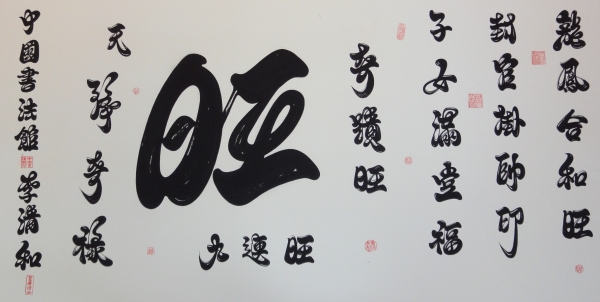 龍鳳合和旺
封官掛帥印
子女滿福
奇蹟旺
旺
九連旺
天奇祿
中國書法館 李清和